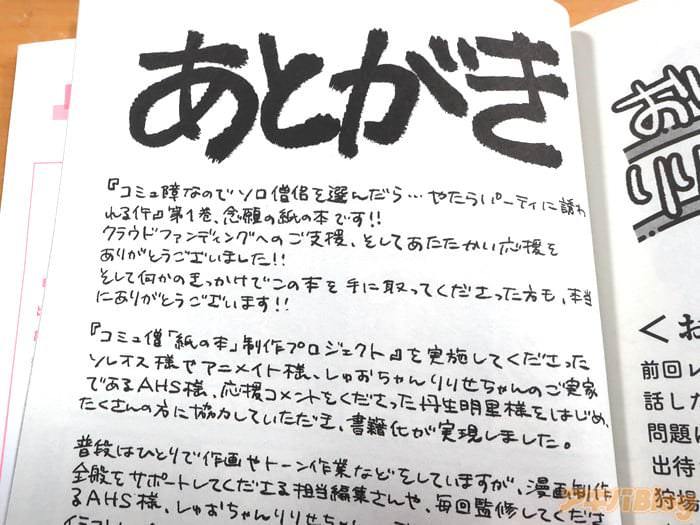 あとがき
『コミュ障なのでソロ僧侶を選んだら…やたらパーティに誘わ
れる件』第1巻、念願の紙の本です!!
クラウドファンディングへのご支援、そしてあたたかい応援を
ありがとうございました!!
そして何かのきっかけでこの本を手に取ってくださった方も、本当
にありがとうございます!!
『コミュ僧「紙の本」制作プロジェクト』を実施してくださった
ソレオス様やアニメイト様、しゅおちゃんりりせちゃんのご実家
であるAHS様、応援コメントをくださった丹生明里様をはじめ、
たくさんの方に協力していただき、書籍化が実現しました。
普段はひとりで作画やトーン作業などをしていますが、漫画制作
全般をサポートしてくださる担当編集さんや、毎回監修してくださ
るAHS様、しゅおちゃんりりせちゃん
＜お
前回レ
話した
問題に
出待
狩場